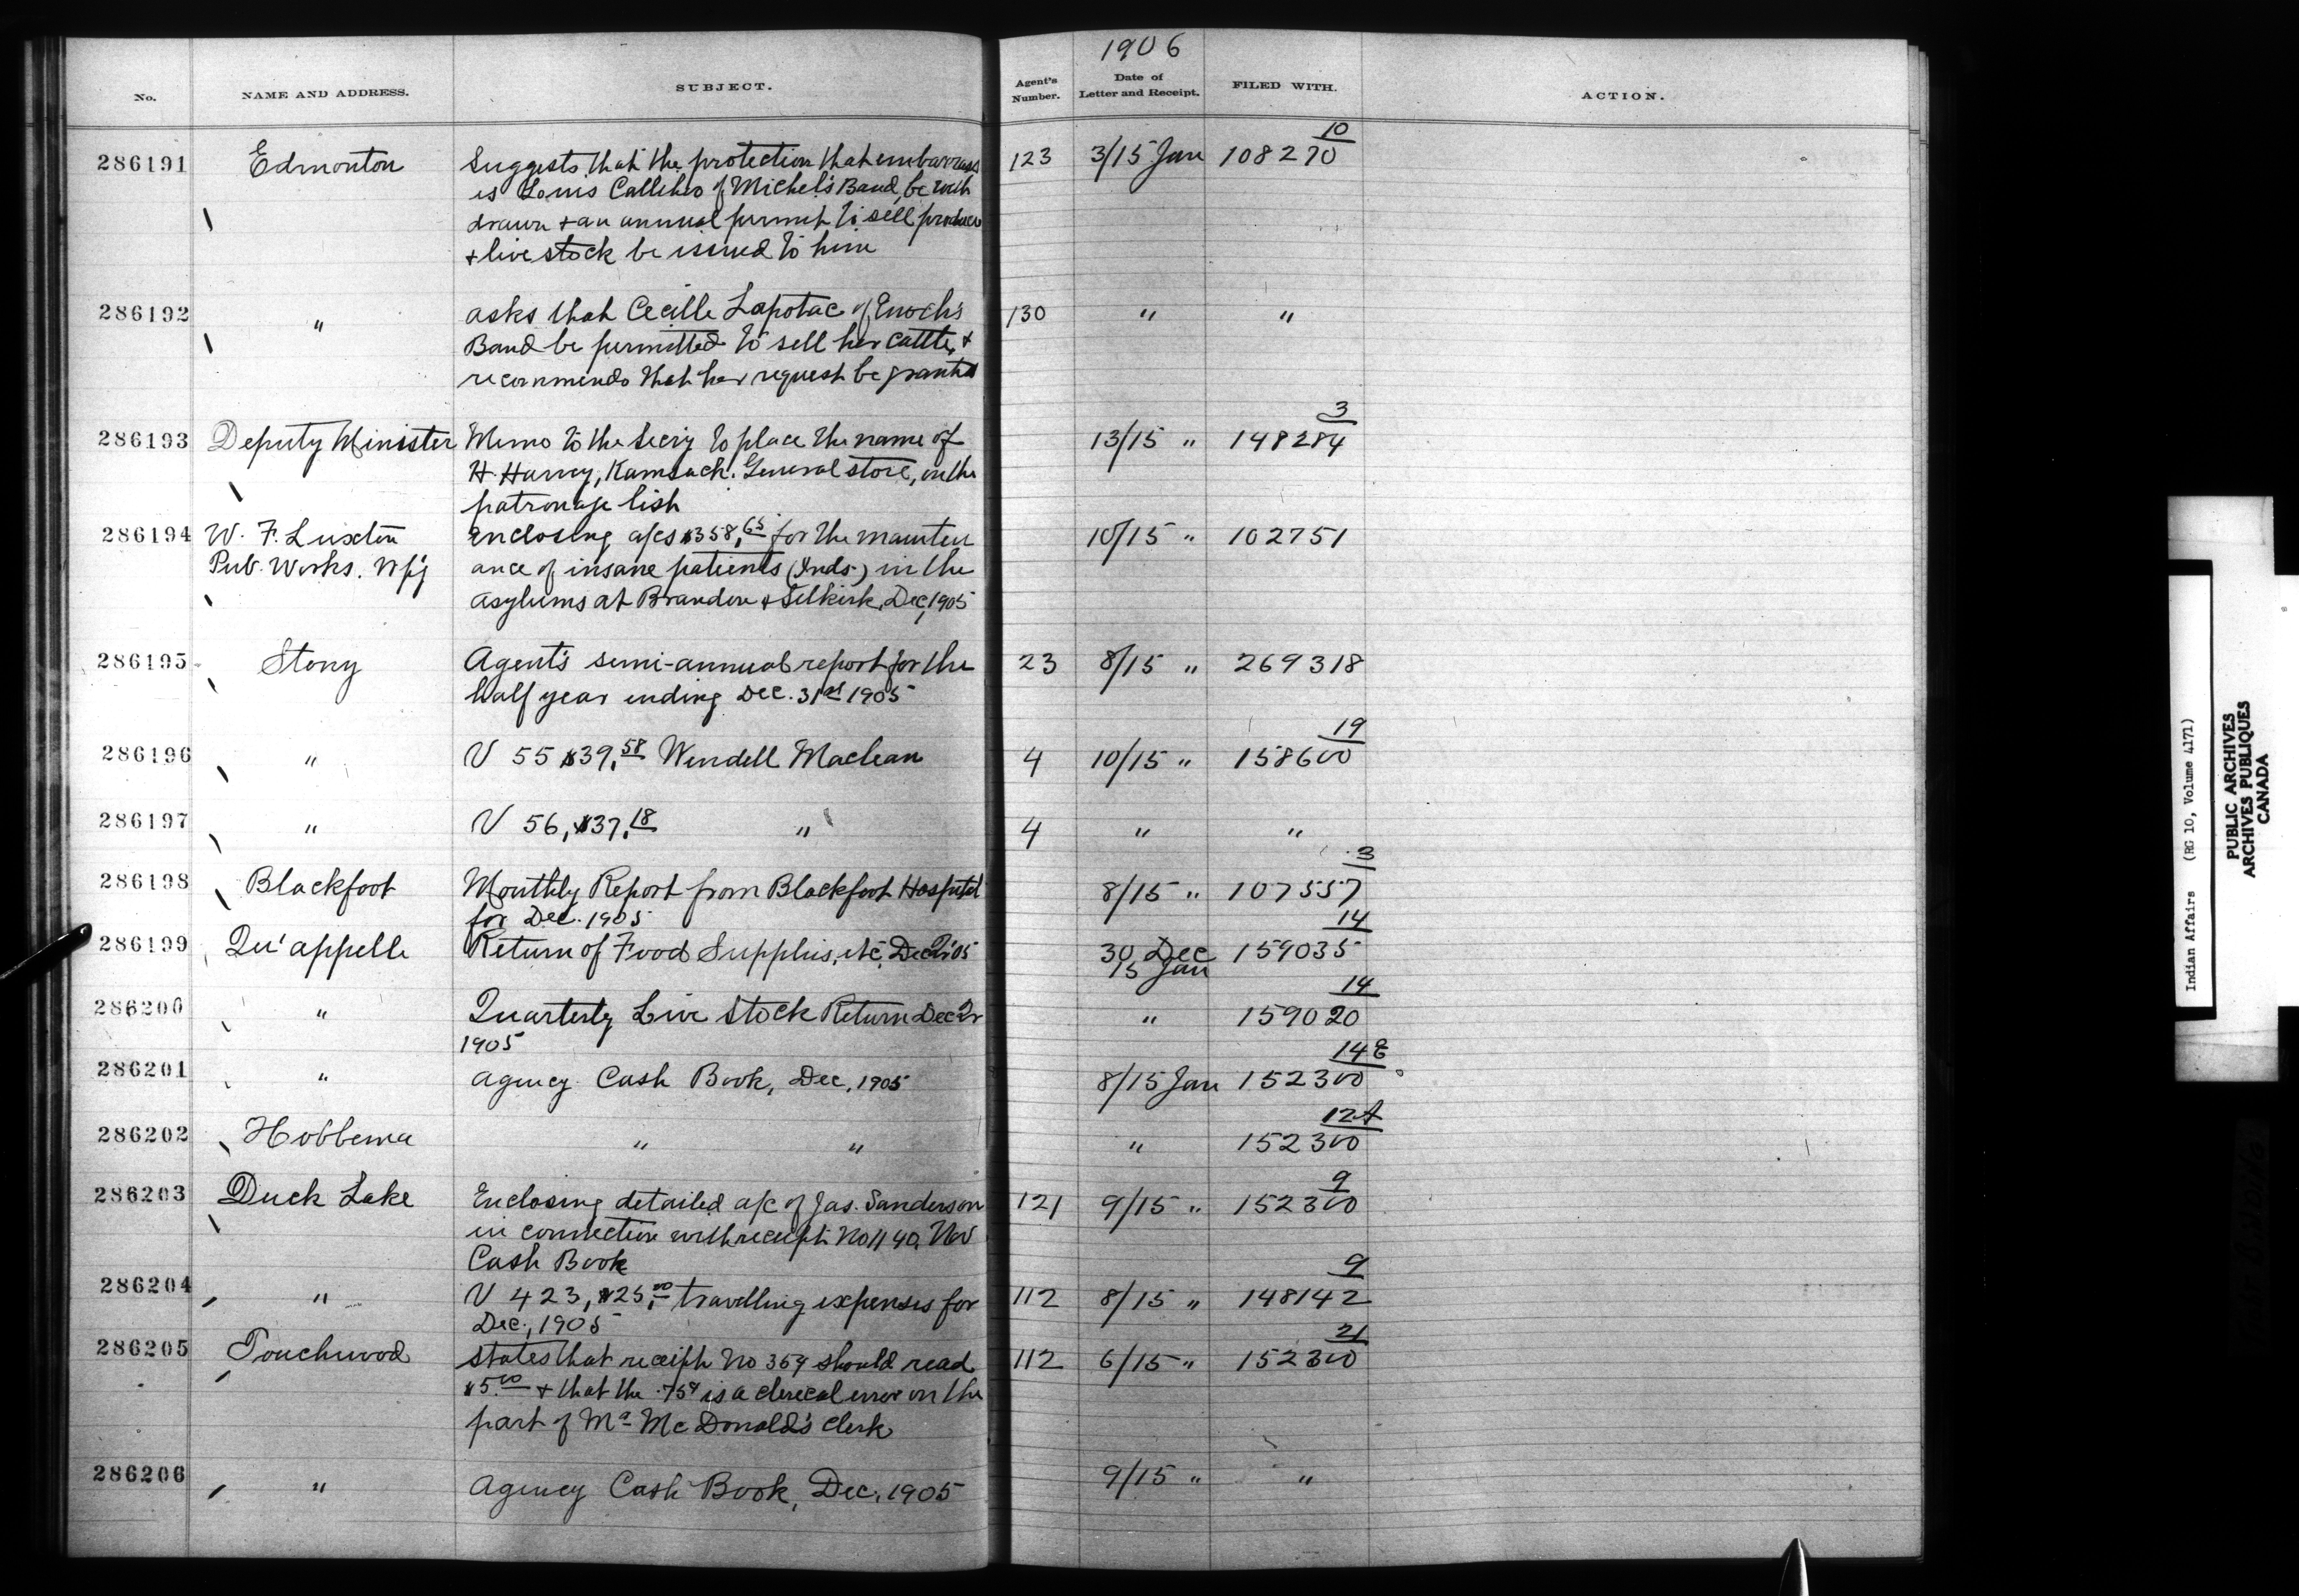 1906
No. NAME AND ADDRESS. SUBJECT. Agent's Number. Date of Letter and Receipt. FILED WITH. ACTION.
10
286191 Edmonton Suggests that the protection that embarrass 123 3/15 Jan 108270
es Louis Callihoo of Michel's Band, be with
drawn + an annual permit to sell produce
+ live stock be issued to him
286192 " asks that Cecille Lapotac of Enoch's 130 " "
Band be permitted to sell her cattle, +
recommends that her request be granted
3
286193 Deputy Minister Memo to the Secr'y to place the name of 13/15 " 148284
H. Harvey, Kamsack. General store, on the
patronage list
286194 W. F. Luxton enclosing a/cs $358.65 for the mainten 10/15 " 102751
Pub. Works. Wp'g ance of insane patients (Inds.) in the
asylums at Brandon & Selkirk, Dec, 1905
286195 Stony Agent's semi-annual report for the 23 8/15 " 269318
half year ending Dec. 31st 1905
19
286196 " V 55 $39.58 Wendell Maclean 4 10/15 " 158600
286197 " V 56, $37.18 " 4 " "
3
286198 Blackfoot Monthly Report from Blackfoot Hospital 8/15 " 107557
for Dec. 1905
14
286199 Qu'appelle Return of Food Supplies, etc, Dec Qr '05 30 Dec 159035
15 Jan
14
286200 " Quarterly Live Stock Return Dec Qr " 159020
1905
14
286201 " Agency Cash Book, Dec, 1905 8/15 Jan 152300
12
286202 Hobbema " " " 152300
9
286203 Duck Lake Enclosing detailed a/c of Jas. Sanderson 121 9/15 " 152300
in connection with receipt No 1140, Nov
Cash Book
9
286204 " V 423, $25.00 travelling expenses for 112 8/15 " 148142
Dec., 1905
21
286205 Touchwood states that receipt No 359 should read 112 6/15 " 152300
$5.00 + that the .75¢ is a clerical error on the
part of Mr McDonald's clerk
286206 " Agency Cash Book, Dec. 1905 9/15 " "
Indian Affairs (RG 10, Volume 4171)
PUBLIC ARCHIVES
ARCHIVES PUBLIQUES
CANADA